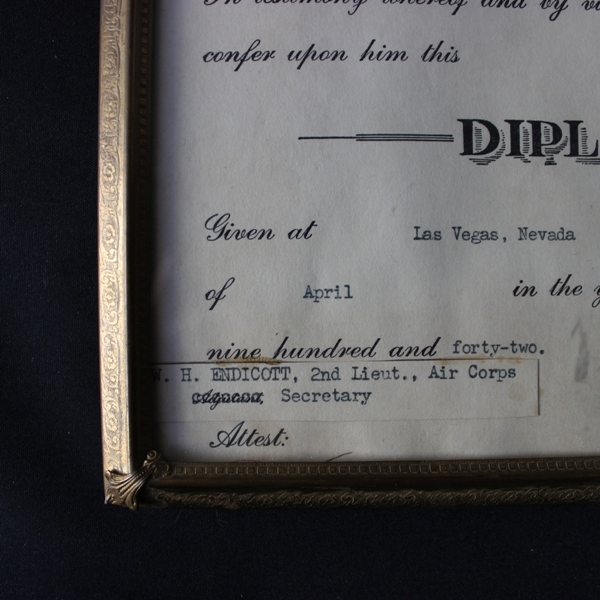 In testimony whereof and by
confer upon him this
DIPL
Given at Las Vegas, Nevada
of April in the
nine hundred and forty-two.
. H. ENDICOTT, 2nd Lieut., Air Corps
Secretary
Attest: